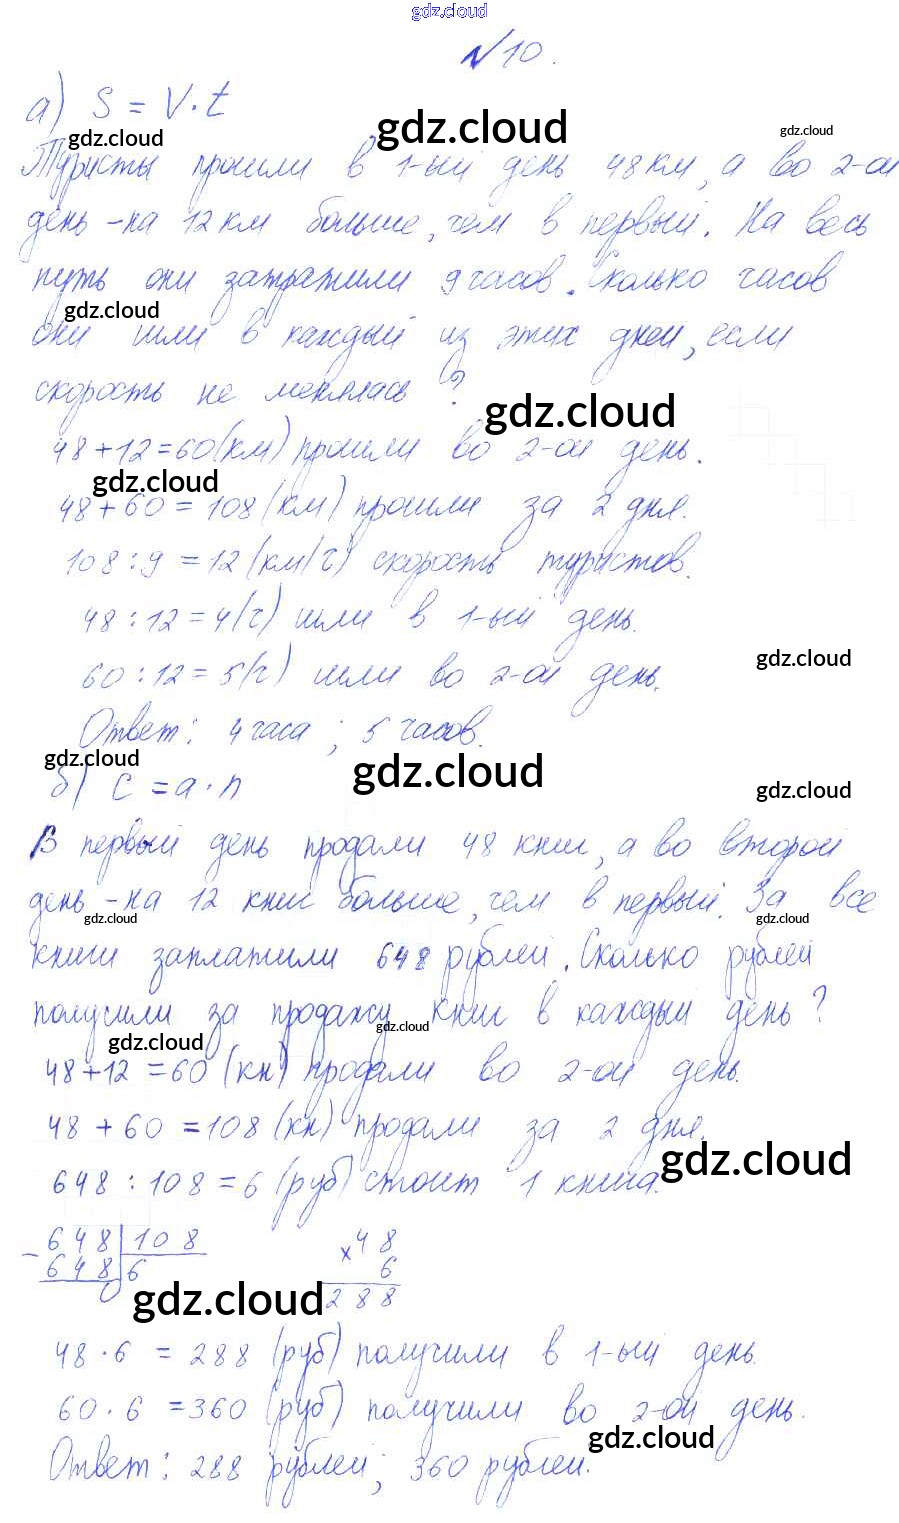 gdz.cloud
№10.
а) S = V · t
gdz.cloud gdz.cloud gdz.cloud
Туристы прошли в 1-ый день 48 км, а во 2-ой
день – на 12 км больше, чем в первый. На весь
путь они затратили 9 часов. Сколько часов
gdz.cloud
они шли в каждый из этих дней, если
скорость не менялась?
gdz.cloud
48 + 12 = 60 (км) прошли во 2-ой день.
gdz.cloud
48 + 60 = 108 (км) прошли за 2 дня.
108 : 9 = 12 (км/ч) скорость туристов.
48 : 12 = 4 (ч) шли в 1-ый день.
gdz.cloud
60 : 12 = 5 (ч) шли во 2-ой день.
Ответ: 4 часа; 5 часов.
gdz.cloud gdz.cloud gdz.cloud
б) c = a · n
В первый день продали 48 книг, а во второй
день – на 12 книг больше, чем в первый. За все
gdz.cloud gdz.cloud
книги заплатили 648 рублей. Сколько рублей
получили за продажу книг в каждый день?
gdz.cloud gdz.cloud
48 + 12 = 60 (кн) продали во 2-ой день.
48 + 60 = 108 (кн) продали за 2 дня.
gdz.cloud
648 : 108 = 6 (руб) стоит 1 книга.
– 648 | 108 × 48
648 | 6 6
0 288
gdz.cloud
48 · 6 = 288 (руб) получили в 1-ый день.
60 · 6 = 360 (руб) получили во 2-ой день.
gdz.cloud
Ответ: 288 рублей; 360 рублей.